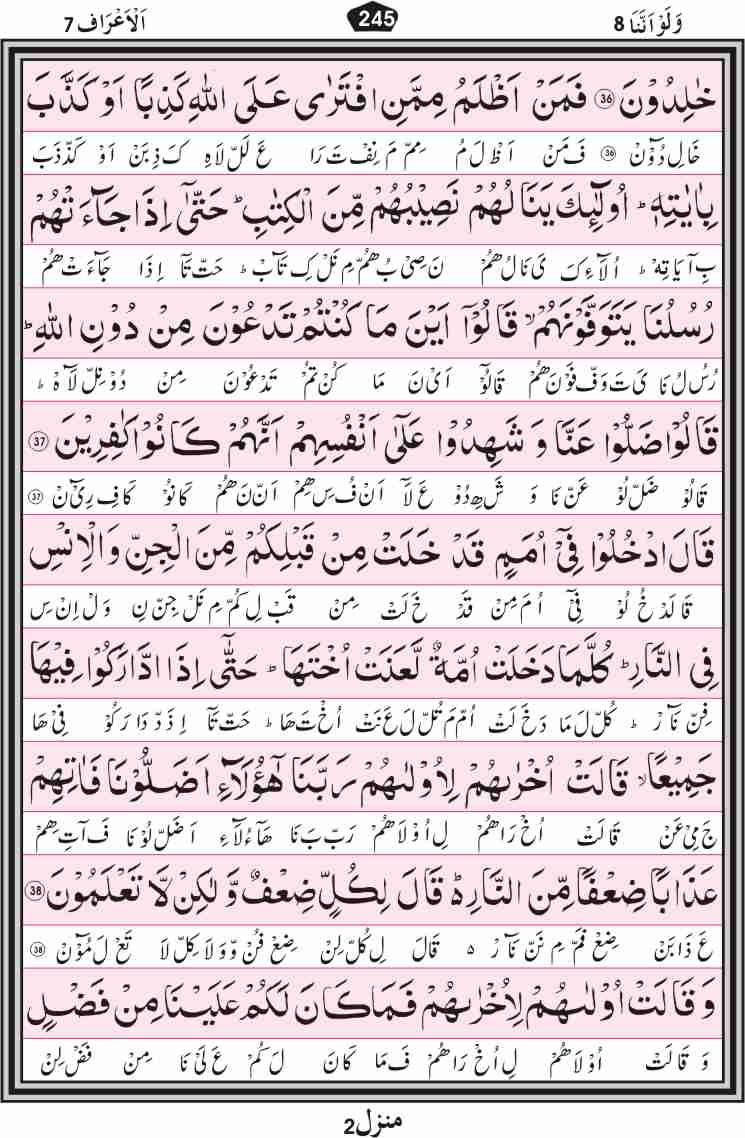 وَلَوْ اَنَّنَا 8 245 اَلْاَعْرَاف 7
خٰلِدُوْنَ ﴿36﴾ فَمَنْ اَظْلَمُ مِمَّنِ افْتَرٰى عَلَى اللّٰهِ كَذِبًا اَوْ كَذَّبَ
خَالِ دُوْٓنْ ﴿36﴾ فَ مَنْ اَظْ لَ مُ مِمْ مَ نِفْ تَ رَا عَ لَلْ لَاهِ كَ ذِ بَنْ اَوْ كَذْ ذَبَ
بِاٰيٰتِهٖ ؕ اُولٰٓئِكَ يَنَالُهُمْ نَصِيْبُهُمْ مِّنَ الْكِتٰبِ ؕ حَتّٰٓى اِذَا جَآءَتْهُمْ
بِ آ يَا تِهْ ؕ اُ لَآ ءِ كَ يَ نَا لُ هُمْ نَ صِىْ بُ هُمْ مِ نَلْ كِ تَآبْ ؕ حَتْ تَآ اِذَا جَآءَتْ هُمْ
رُسُلُنَا يَتَوَفَّوْنَهُمْ ۙ قَالُوْٓا اَيْنَ مَا كُنْتُمْ تَدْعُوْنَ مِنْ دُوْنِ اللّٰهِ ؕ
رُسُ لُ نَا ىَ تَ وَفْ فَوْ نَ هُمْ قَالُوْٓ اَىْ نَ مَا كُنْ تُمْ تَدْعُوْنَ مِنْ دُوْ نِلْ لَآهْ ؕ
قَالُوْا ضَلُّوْا عَنَّا وَ شَهِدُوْا عَلٰٓى اَنْفُسِهِمْ اَنَّهُمْ كَانُوْا كٰفِرِيْنَ ﴿37﴾
قَالُوْ ضَلْ لُوْ عَنْ نَا وَ شَهِ دُوْ عَ لَآ اَنْ فُ سِ هِمْ اَنْ نَ هُمْ كَانُوْ كَافِ رِىْٓنْ ﴿37﴾
قَالَ ادْخُلُوْا فِىْٓ اُمَمٍ قَدْ خَلَتْ مِنْ قَبْلِكُمْ مِّنَ الْجِنِّ وَالْاِنْسِ
قَا لَدْ خُ لُوْ فِىْٓ اُ مَ مِنْ قَدْ خَ لَتْ مِنْ قَبْ لِ كُمْ مِ نَلْ جِنْ نِ وَلْ اِنْ سِ
فِى النَّارِ ؕ كُلَّمَا دَخَلَتْ اُمَّةٌ لَّعَنَتْ اُخْتَهَا ؕ حَتّٰٓى اِذَا ادَّارَكُوْا فِيْهَا
فِنْ نَآرْ ؕ كُلْ لَ مَا دَ خَ لَتْ اُمْ مَ تُلْ لَ عَ نَتْ اُخْ تَ هَا ؕ حَتْ تَآ اِ ذَدْ دَا رَ كُوْ فِىْ هَا
جَمِيْعًا ۙ قَالَتْ اُخْرٰىهُمْ لِاُوْلٰىهُمْ رَبَّنَا هٰٓؤُلَآءِ اَضَلُّوْنَا فَاٰتِهِمْ
جَ مِىْ عَنْ قَالَتْ اُخْ رَا هُمْ لِ اُوْ لَا هُمْ رَبْ بَ نَا هَآءُلَآءِ اَضَلْ لُوْ نَا فَ آ تِ هِمْ
عَذَابًا ضِعْفًا مِّنَ النَّارِ ؕ قَالَ لِكُلٍّ ضِعْفٌ وَّ لٰكِنْ لَّا تَعْلَمُوْنَ ﴿38﴾
عَ ذَا بَنْ ضِعْ فَمْ مِ نَنْ نَآرْ ٥ قَالَ لِ كُلْ لِنْ ضِعْ فُنْ وَ وَ لَا كِلْ لَا تَعْ لَ مُوْٓنْ ﴿38﴾
وَ قَالَتْ اُوْلٰىهُمْ لِاُخْرٰىهُمْ فَمَا كَانَ لَكُمْ عَلَيْنَا مِنْ فَضْلٍ
وَ قَا لَتْ اُوْلَاهُمْ لِ اُخْ رَا هُمْ فَ مَا كَانَ لَ كُمْ عَ لَىْ نَا مِنْ فَضْ لِنْ
منزل2